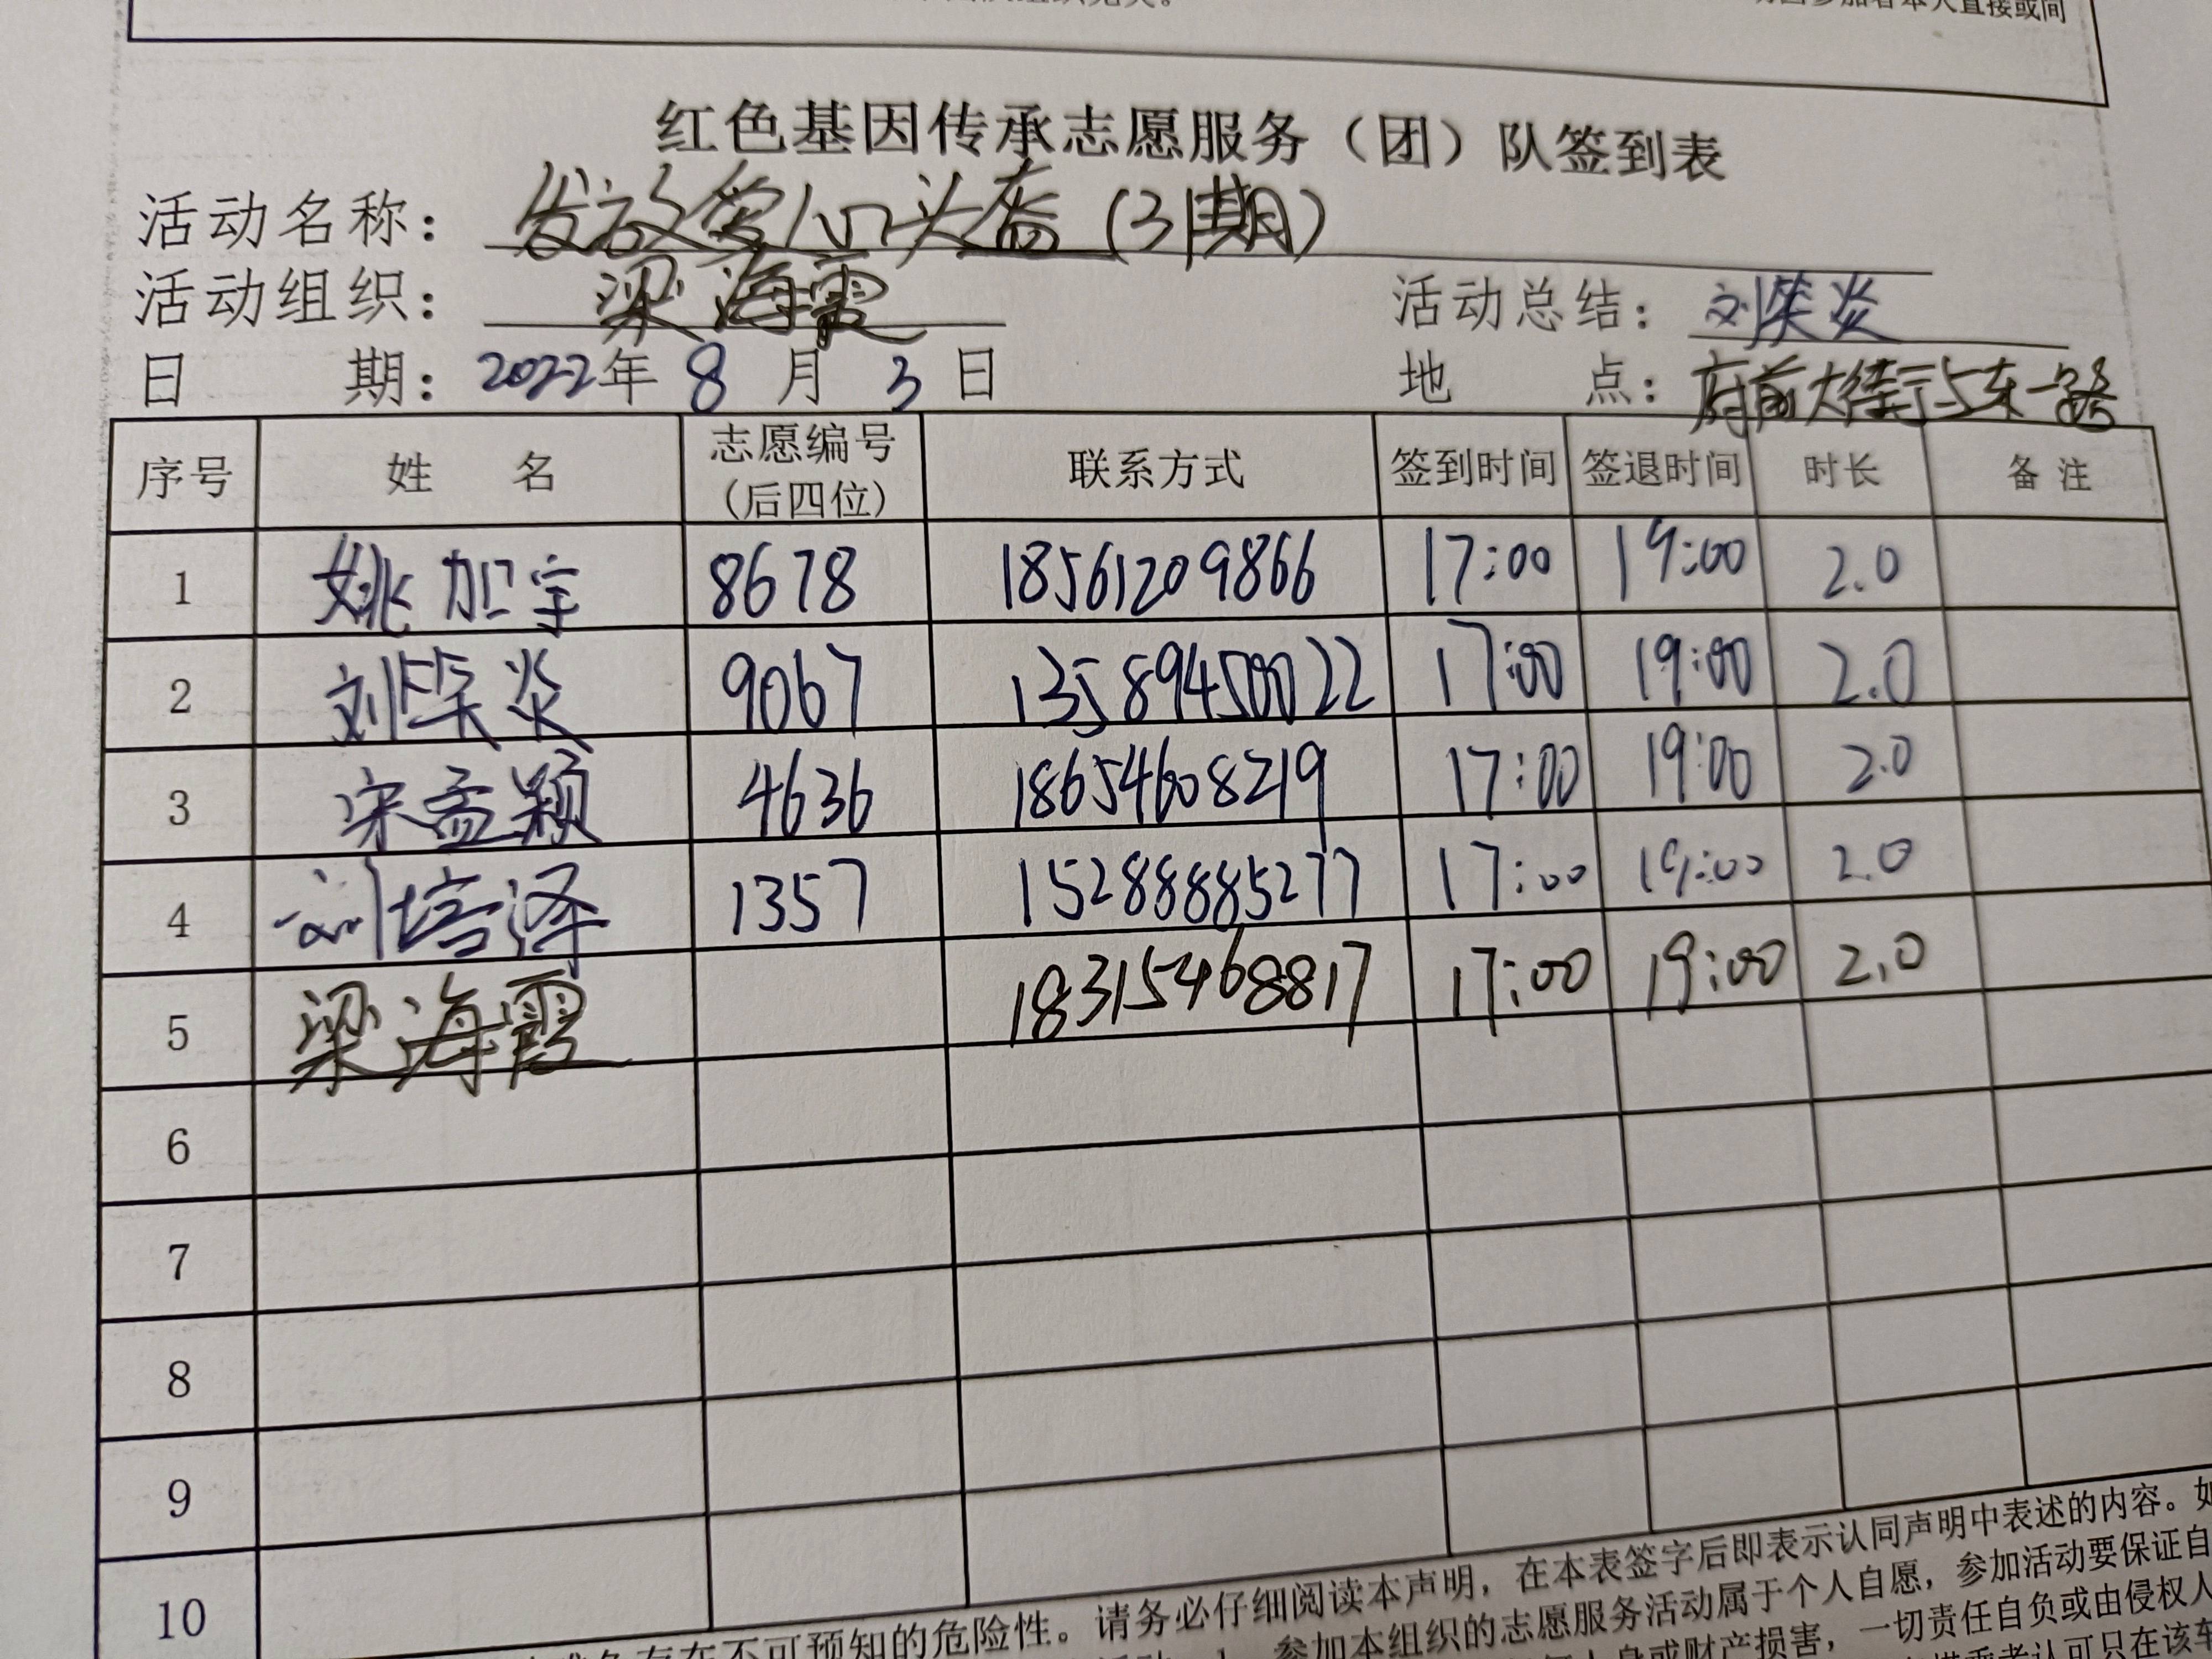 动因参加者本人直接或间
红色基因传承志愿服务（团）队签到表
活动名称：发放爱心头盔（31期）
活动组织：梁海霞 活动总结：刘柒炎
日 期：2022年 8 月 3 日 地 点：府前大街与东一路
序号 姓 名 志愿编号（后四位） 联系方式 签到时间 签退时间 时长 备注
1 姚加宇 8678 18561209866 17:00 19:00 2.0
2 刘柒炎 9067 13589450022 17:00 19:00 2.0
3 宋孟颖 4636 18654608219 17:00 19:00 2.0
4 刘培泽 1357 15288885277 17:00 19:00 2.0
5 梁海霞 18315468817 17:00 19:00 2.0
6
7
8
9
10
存在不可预知的危险性。请务必仔细阅读本声明，在本表签字后即表示认同声明中表述的内容。如
参加本组织的志愿服务活动属于个人自愿，参加活动要保证自
人身或财产损害，一切责任自负或由侵权人
者认可只在该车